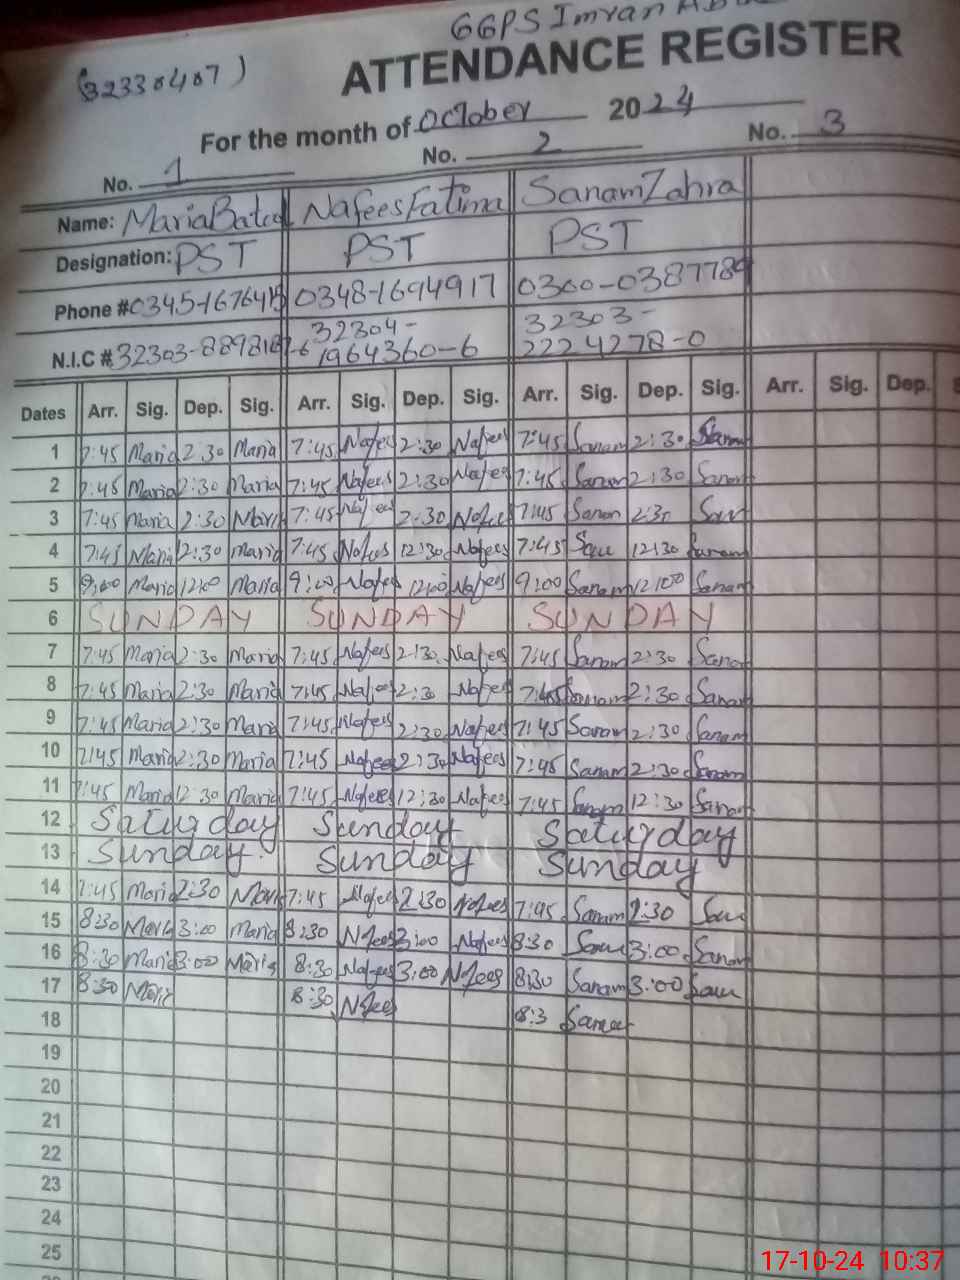 GGPS Imran
(32330407)
ATTENDANCE REGISTER
For the month of October 2024
No. 1 No. 2 No. 3
Name: Maria Batool Nafees Fatima Sanam Zahra
Designation: PST PST PST
Phone # 0348-1694917 0300-0387789
N.I.C # 32304-1964360-6 32303-2224278-0
Dates Arr. Sig. Dep. Sig. Arr. Sig. Dep. Sig. Arr. Sig. Dep. Sig. Arr. Sig. Dep.
1 7:45 Maria 2:30 Maria 7:45 Nafees 2:30 Nafees 7:45 Sanam 2:30 Sanam
2 7:45 Maria 2:30 Maria 7:45 Nafees 2:30 Nafees 7:45 Sanam 2:30 Sanam
3 7:45 Maria 2:30 Maria 7:45 Nafees 2:30 Nafees 7:45 Sanam 2:30
4 7:45 Maria 2:30 Maria 7:45 Nafees 12:30 Nafees 7:45 12:30 Sanam
5 9:00 Maria 12:00 Maria 9:00 Nafees 12:00 Nafees 9:00 Sanam 12:00 Sanam
6 SUNDAY SUNDAY SUNDAY
7 7:45 Maria 2:30 Maria 7:45 Nafees 2:30 Nafees 7:45 Sanam 2:30 Sanam
8 7:45 Maria 2:30 Maria 7:45 Nafees 2:30 Nafees 7:45 Sanam 2:30 Sanam
9 7:45 Maria 2:30 Maria 7:45 Nafees 2:30 Nafees 7:45 Sanam 2:30 Sanam
10 7:45 Maria 2:30 Maria 7:45 Nafees 2:30 Nafees 7:45 Sanam 2:30 Sanam
11 7:45 Maria 12:30 Maria 7:45 Nafees 12:30 Nafees 7:45 Sanam 12:30 Sanam
12 Saturday Sunday Saturday
13 Sunday Sunday Sunday
14 7:45 Maria 2:30 Maria 7:45 Nafees 2:30 Nafees 7:45 Sanam 2:30
15 8:30 Maria 3:00 Maria 8:30 Nafees 3:00 Nafees 8:30 3:00 Sanam
16 8:30 Maria 3:00 Maria 8:30 Nafees 3:00 Nafees 8:30 Sanam 3:00
17 8:30 Maria 8:30 Nafees 8:3
18
19
20
21
22
23
24
25
17-10-24 10:37